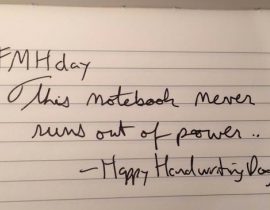 FMHday
This notebook never
runs out of power..
—Happy Handwriting Day